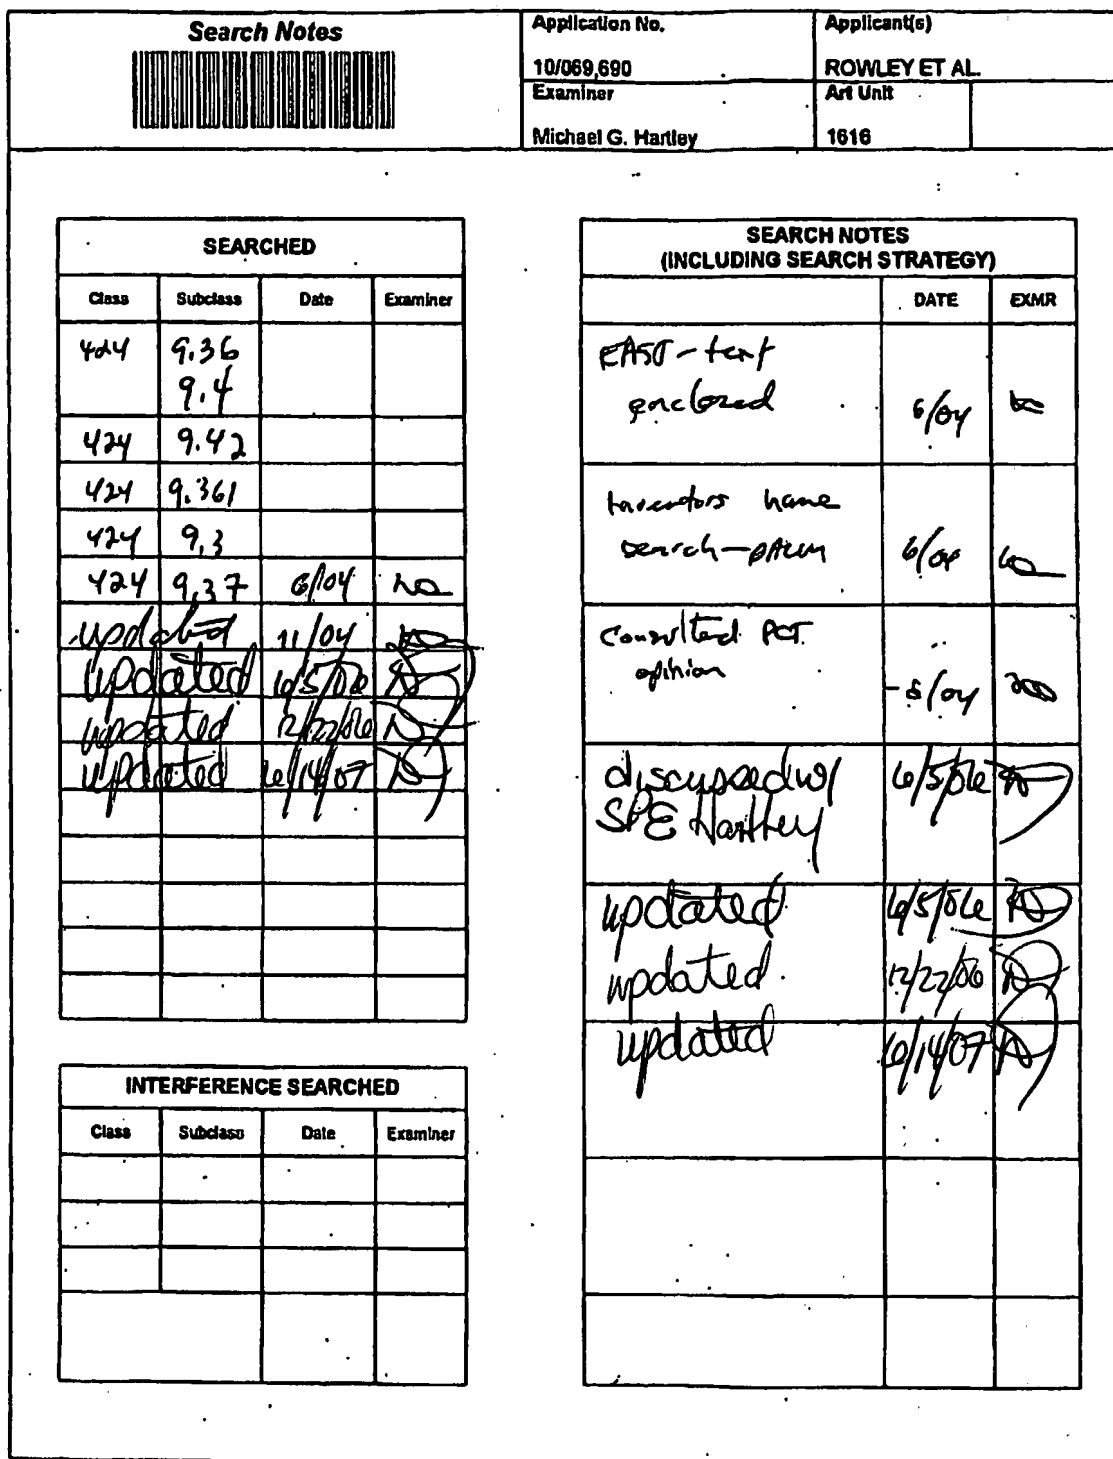 Search Notes
Application No.
Applicant(s)
10/069,690
ROWLEY ET AL.
Examiner
Art Unit
Michael G. Hartley
1616
SEARCHED
Class Subclass Date Examiner
424 9.36
9.4
424 9.42
424 9.361
424 9.3
424 9.37 6/04
updated 11/04
updated 6/5/06
updated 12/22/06
updated 6/14/07
INTERFERENCE SEARCHED
Class Subclass Date Examiner
SEARCH NOTES
(INCLUDING SEARCH STRATEGY)
DATE EXMR
EAST - text
enclosed 6/04
Inventors name
search - PALM 6/04
Consulted PCT
opinion 5/04
discussed w/ 6/5/06
SPE Hartley
updated 6/5/06
updated 12/22/06
updated 6/14/07